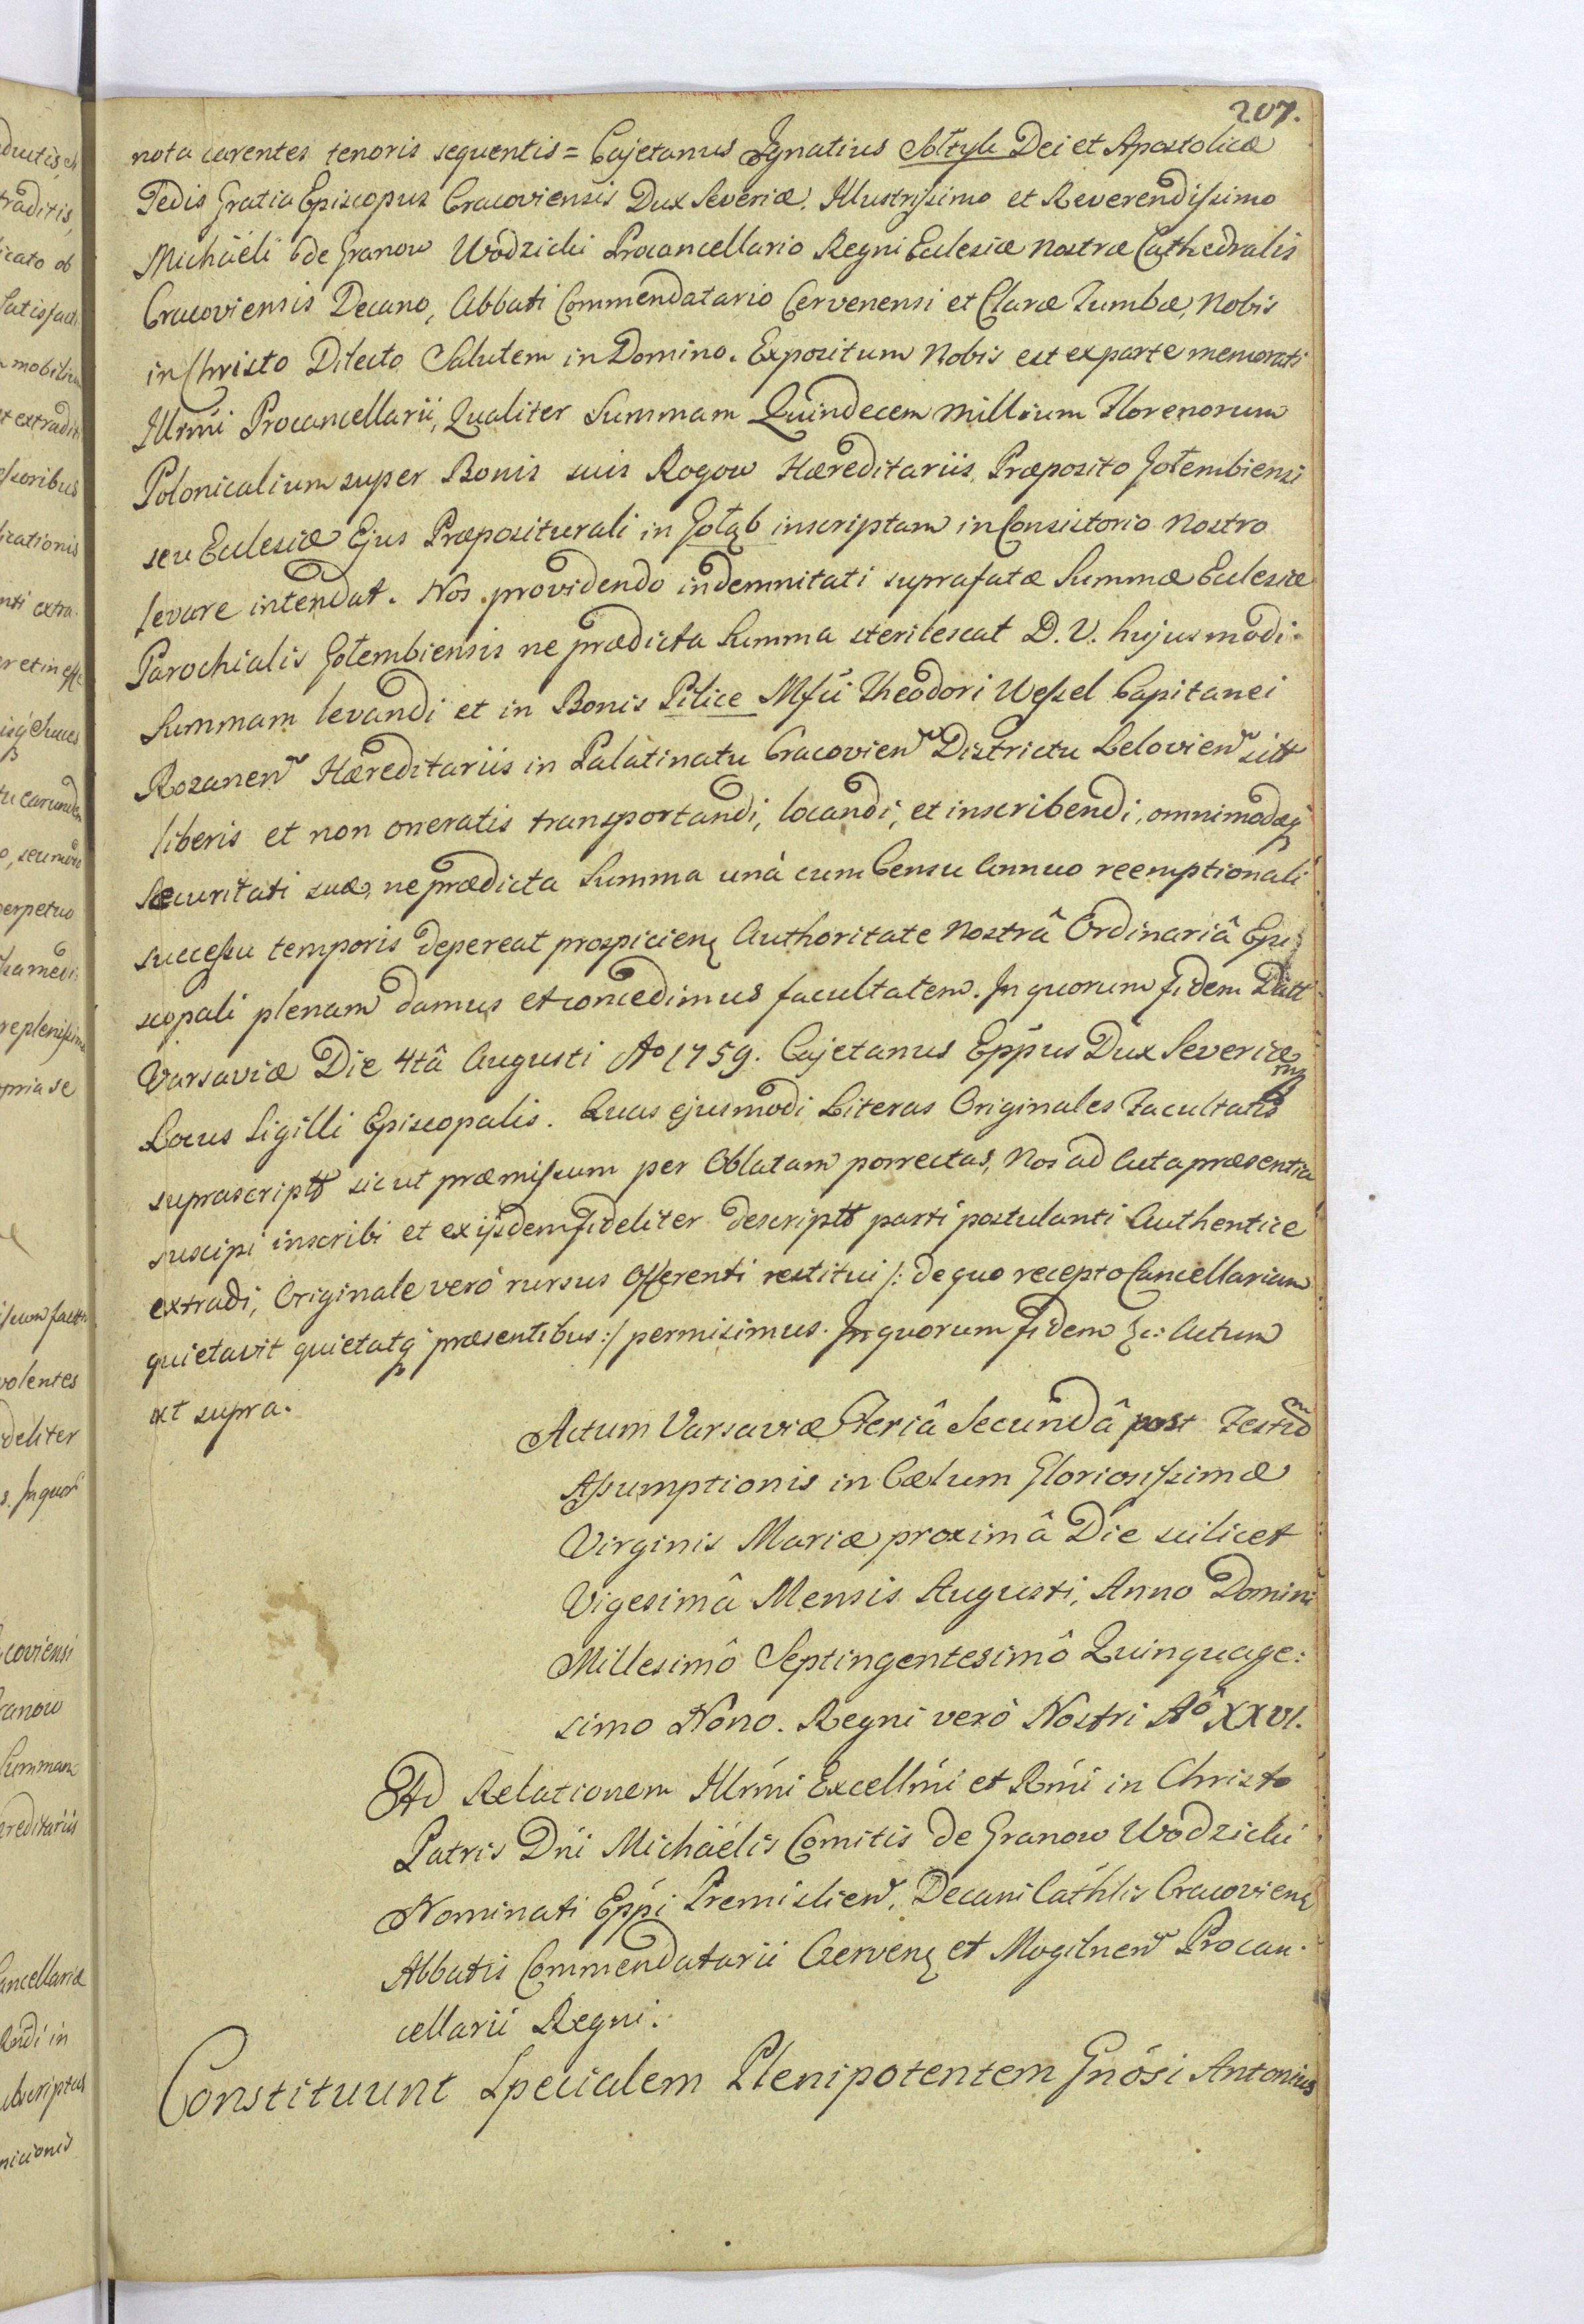 207.
nota carentes tenoris sequentis = Cajetanus Ignatius Sołtyk Dei et Apostolicæ
Sedis Gratia Episcopus Cracoviensis Dux Severiæ. Illustrissimo et Reverendissimo
Michäeli de Granow Wodzicki Procancellario Regni Eclesiæ nostræ Cathedralis
Cracoviensis Decano, Abbati Commendatario Cervenensi et Claræ Tumbæ, Nobis
in Christo Dilecto Salutem in Domino. Expositum Nobis est ex parte memorati
Illrmi Procancellarii, Qualiter Summam Quindecem millium Florenorum
Polonicalium super Bonis suis Rogow Hæreditariis, Præposito Gołembiensi
seu Eclesiæ Ejus Præpositurali in Gołąb inscriptam in Consistorio Nostro
levare intendat. Nos providendo indemnitati suprafatæ Summæ Eclesiæ
Parochialis Gołembiensis ne prædicta Summa sterilescat D. V. hujusmodi
Summam levandi et in Bonis Pilice Mfci Theodori Wessel Capitanei
Rozanen Hæreditariis in Palatinatu Cracovien Districtu Lelovien sitt
liberis et non oneratis transportandi, locandi, et inscribendi, omnimodæq
Securitati suæ, ne prædicta Summa unà cum Censu Annuo reemptionali
successu temporis depereat prospicien Authoritate Nostrâ Ordinariâ Epi
scopali plenam damus et concedimus facultatem. In quorum fidem Datt
Varsaviæ Die 4tâ Augusti Ao 1759. Cajetanus Eppus Dux Severiæ mp
Locus Sigilli Episcopalis. Quas ejusmodi Literas Originales Facultatis
suprascriptt sicut præmissum per Oblatam porrectas, Nos ad Acta præsentia
suscipi inscribi et ex ijsdem fideliter descriptt parti postulanti Authentice
extradi, Originale verò rursus Offerenti restitui /: de quo recepto Cancellariam
quietavit quietatq præsentibus :/ permisimus. In quorum fidem &c: Actum
ut supra.
Actum Varsaviæ Feriâ Secundâ post Festum
Assumptionis in Cælum Gloriosissimæ
Virginis Mariæ proximâ Die scilicet
Vigesimâ Mensis Augusti, Anno Domini
Millesimô Septingentesimô Quinquage:
simo Nono. Regni verò Nostri Aô XXVI.
Ad Relationem Illrmi Excellmi et Rmi in Christo
Patris Dni Michäelis Comitis de Granow Wodzicki
Nominati Eppi Premislien, Decani Cathlis Cracovien
Abbatis Commendatarii Czerven et Mogilnen Procan-
cellarii Regni.
Constituunt Specialem Plenipotentem Gnosi Antonius